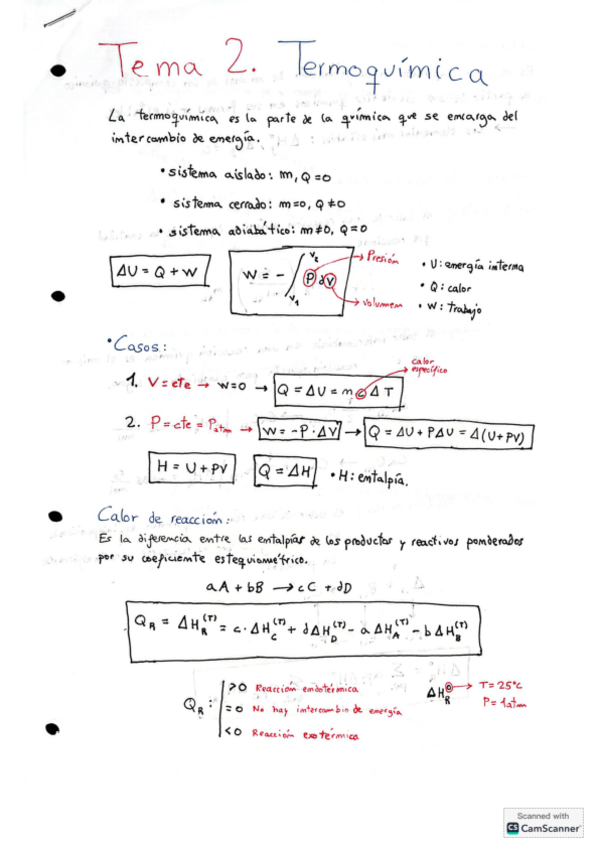 Tema 2. Termoquímica
La termoquímica es la parte de la química que se encarga del
intercambio de energía.
• sistema aislado: m, Q = 0
• sistema cerrado: m = 0, Q ≠ 0
• sistema adiabático: m ≠ 0, Q = 0
ΔU = Q + W
W = - ∫ V₁ V₂ P dV
→ Presión
→ volumen
• U: energía interna
• Q: calor
• W: trabajo
• Casos:
calor específico
1. V = cte → W = 0 → Q = ΔU = m c ΔT
2. P = cte = Patm → W = -P · ΔV → Q = ΔU + PΔU = Δ(U + PV)
H = U + PV Q = ΔH • H: entalpía.
Calor de reacción:
Es la diferencia entre las entalpías de los productos y reactivos ponderados
por su coeficiente estequiométrico.
aA + bB → cC + dD
Q_R = ΔH_R^(T) = c · ΔH_C^(T) + dΔH_D^(T) - a ΔH_A^(T) - b ΔH_B^(T)
Q_R:
> 0 Reacción endotérmica
= 0 No hay intercambio de energía
< 0 Reacción exotérmica
ΔH_R^0 → T = 25°C
P = 1 atm
Scanned with
CS CamScanner